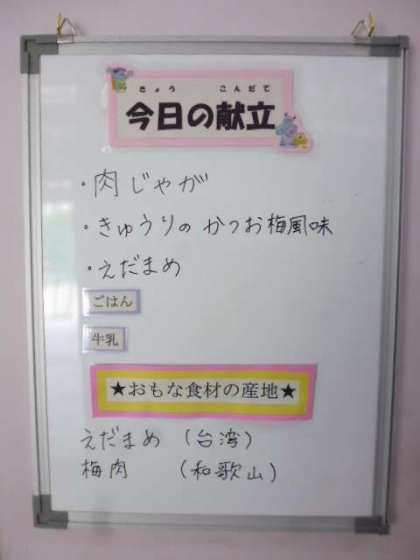 きょう こんだて
今日の献立
・肉じゃが
・きゅうりのかつお梅風味
・えだまめ
ごはん
牛乳
★おもな食材の産地★
えだまめ (台湾)
梅肉 (和歌山)